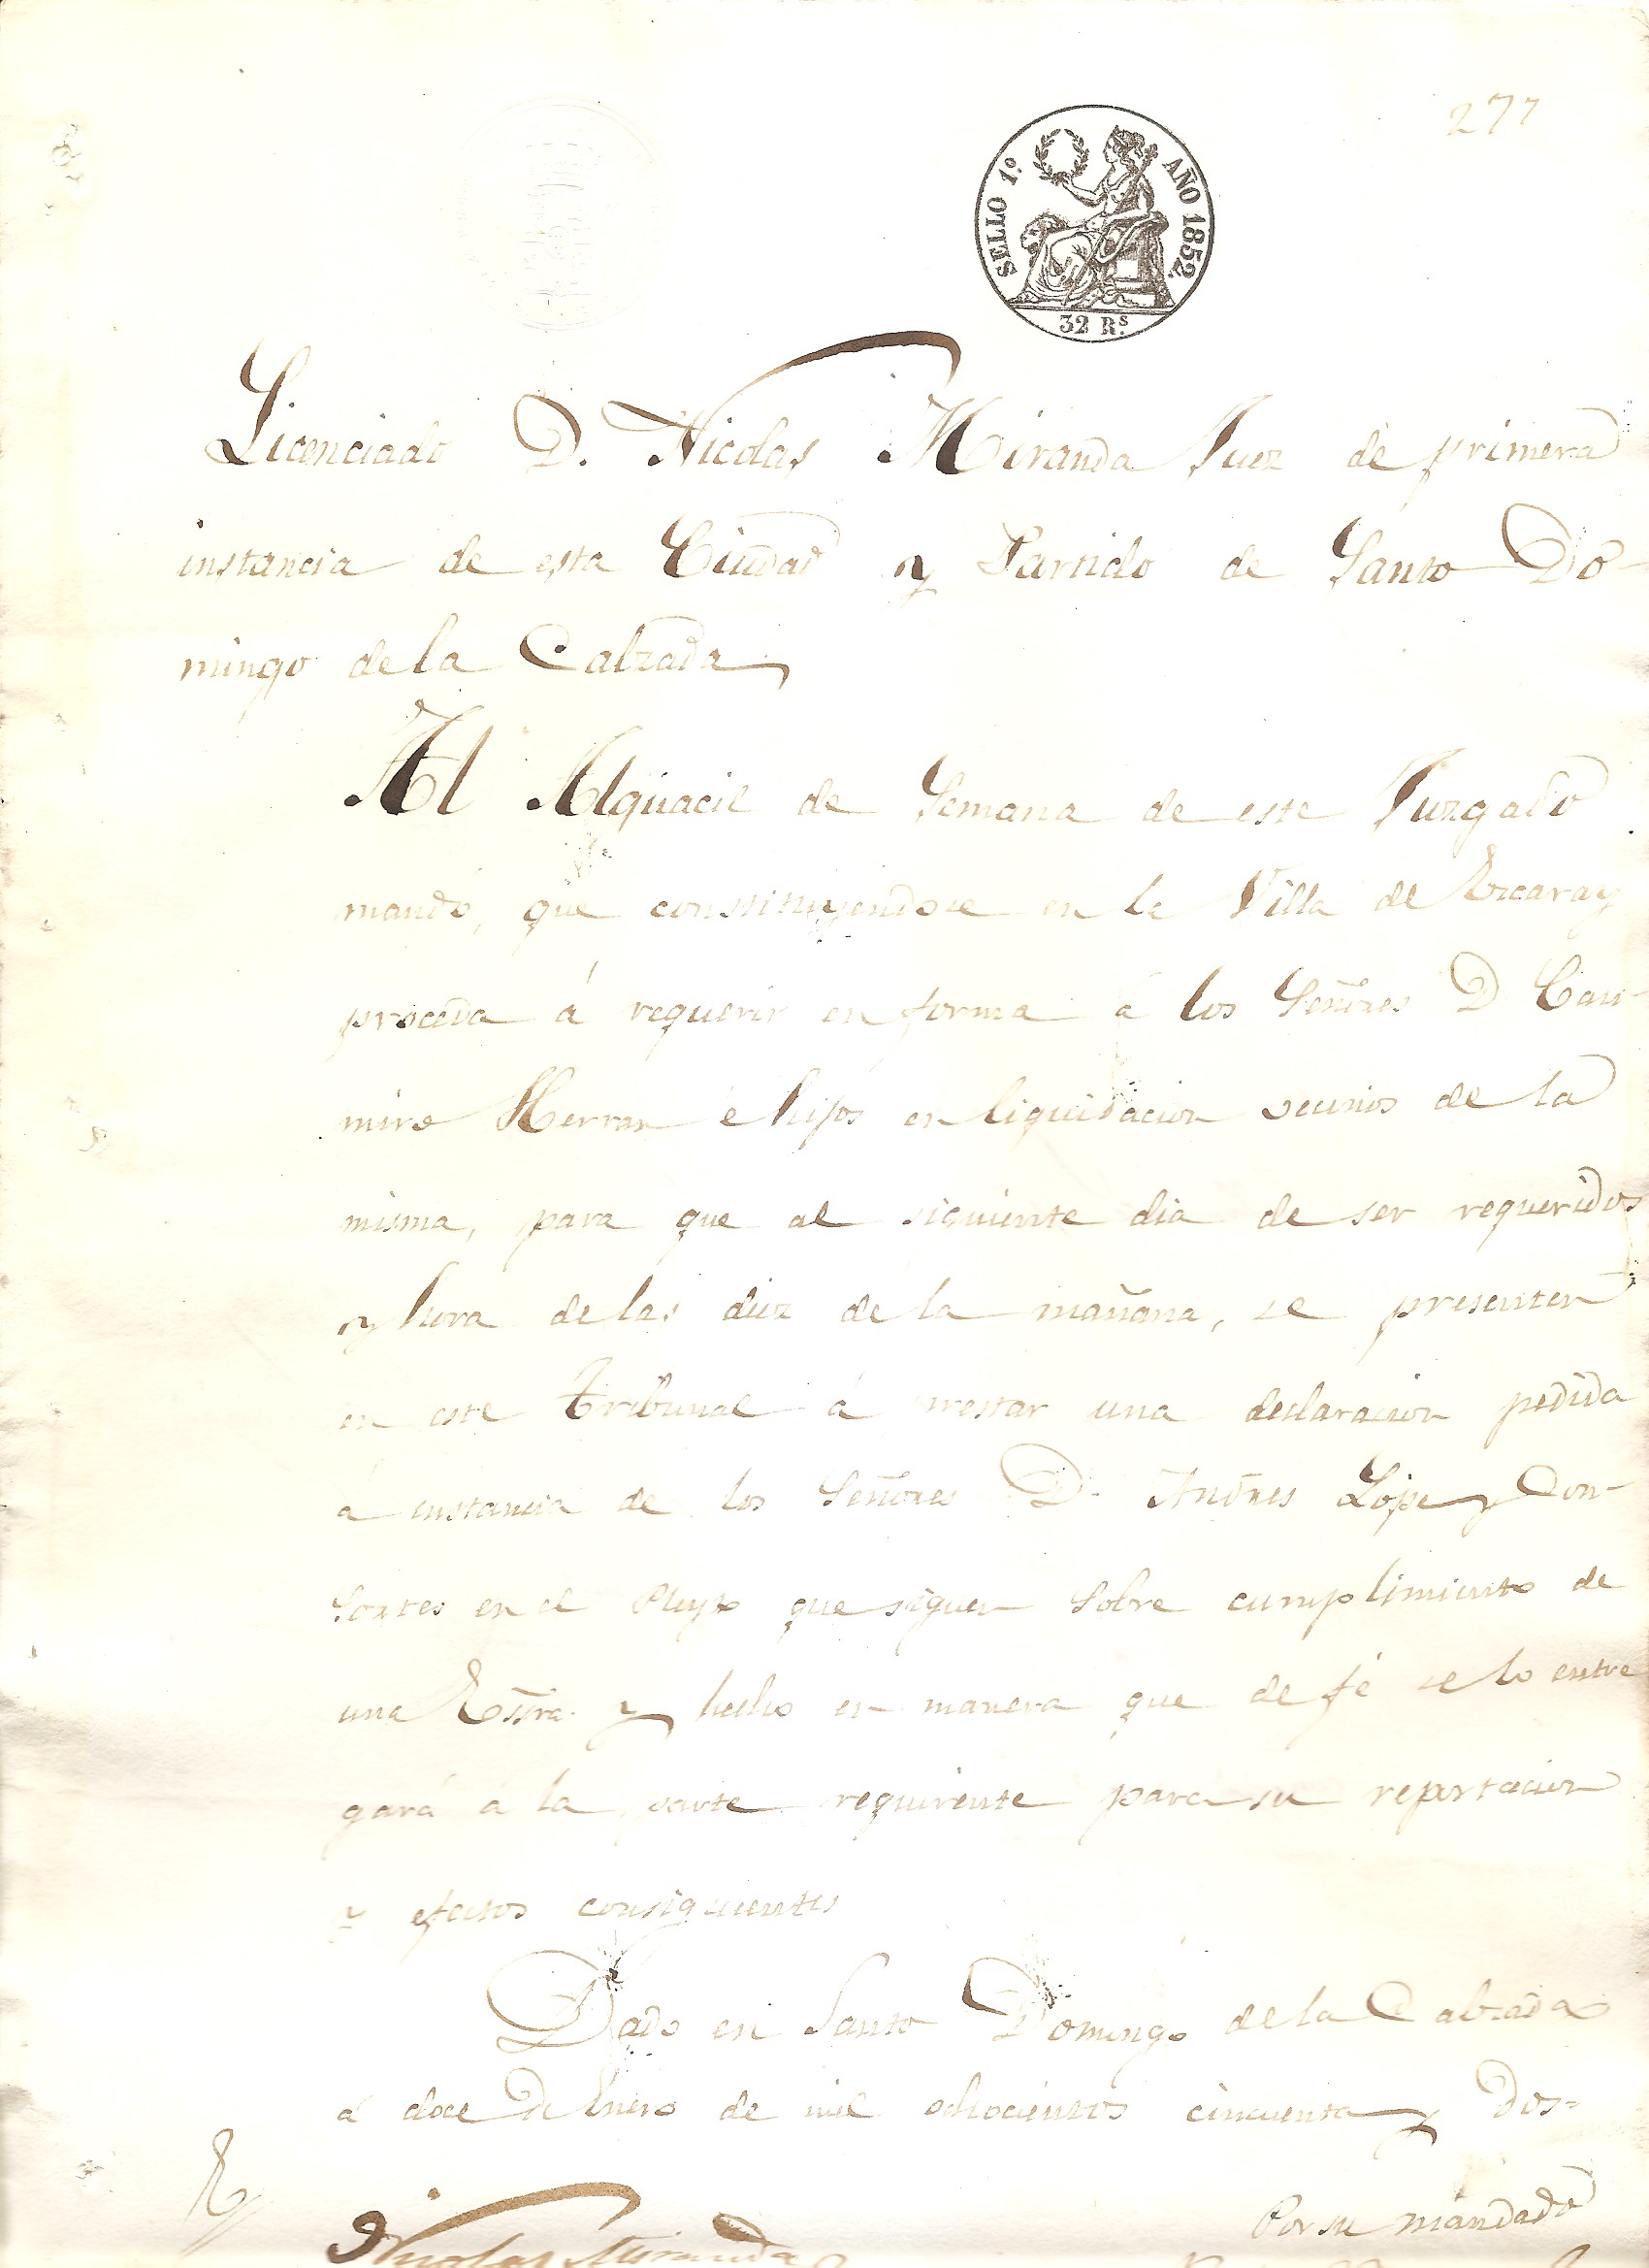 277
SELLO 1.º AÑO 1852.
32 R.s
Licenciado D. Nicolas Miranda Juez de primera
instancia de esta Ciudad y Partido de Santo Do-
mingo de la Calzada
Al Alguacil de Semana de este Juzgado
mando, que constituyendose en la Villa de Ezcaray
proceda á requerir en forma á los Señores D Casi-
miro Herran é hijos en liquidacion vecinos de la
misma, para que al siguiente dia de ser requeridos
y hora de las diez de la mañana, se presenten
en este Tribunal á prestar una declaracion pedida
á instancia de los Señores D. Andres Lope y Con-
sortes en el Pleyto que siguen sobre cumplimiento de
una Essra. y hecho en manera que de fé se lo entre
gará á la parte requirente para su reportacion
y efectos consiguientes
Dado en Santo Domingo de la Calzada
á doce de Enero de mil ochocientos cincuenta y dos=
Por su mandado
Nicolas Miranda